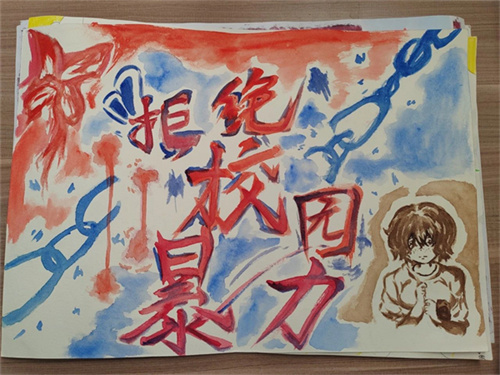 拒绝
校园
暴力